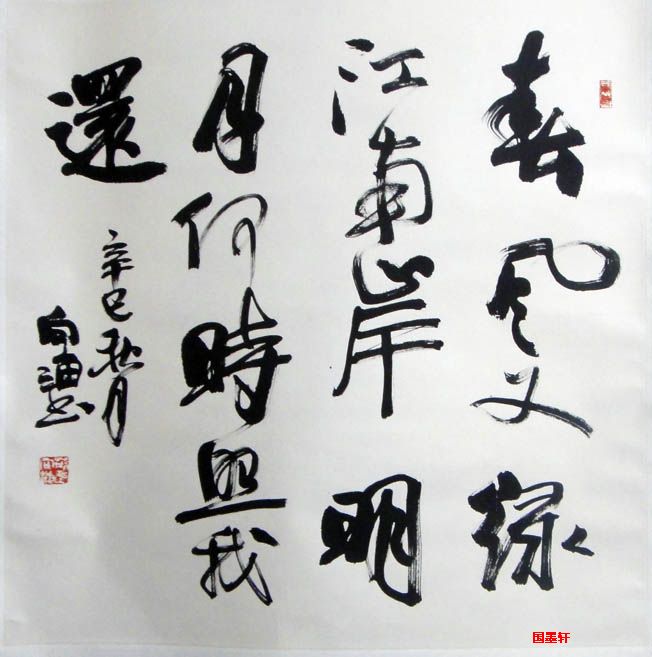 春风又绿
江南岸明
月何時照我
還
辛巳秋月
国墨轩